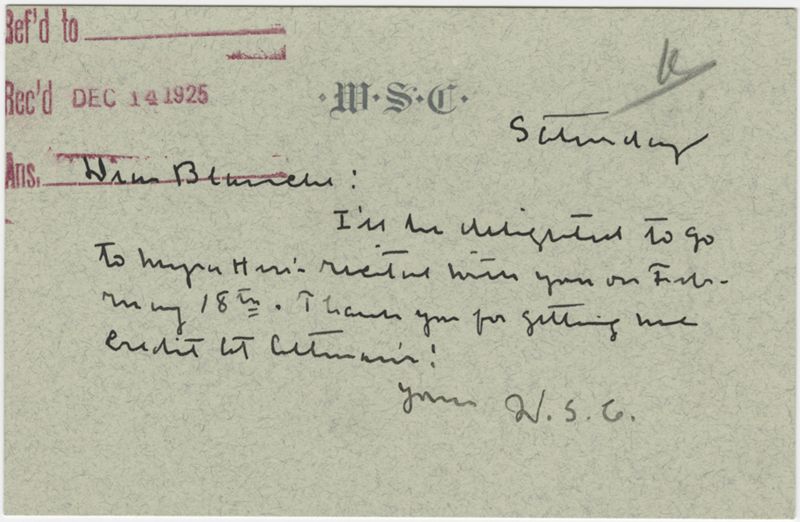 Ref'd to
Rec'd DEC 14 1925
·W·S·C·
Saturday
Ans.
Dear Blanche:
I'll be delighted to go
to Myra Hess' recital with you on Feb-
ruary 18th. Thank you for getting me
credit at Altman's!
Yours W. S. C.